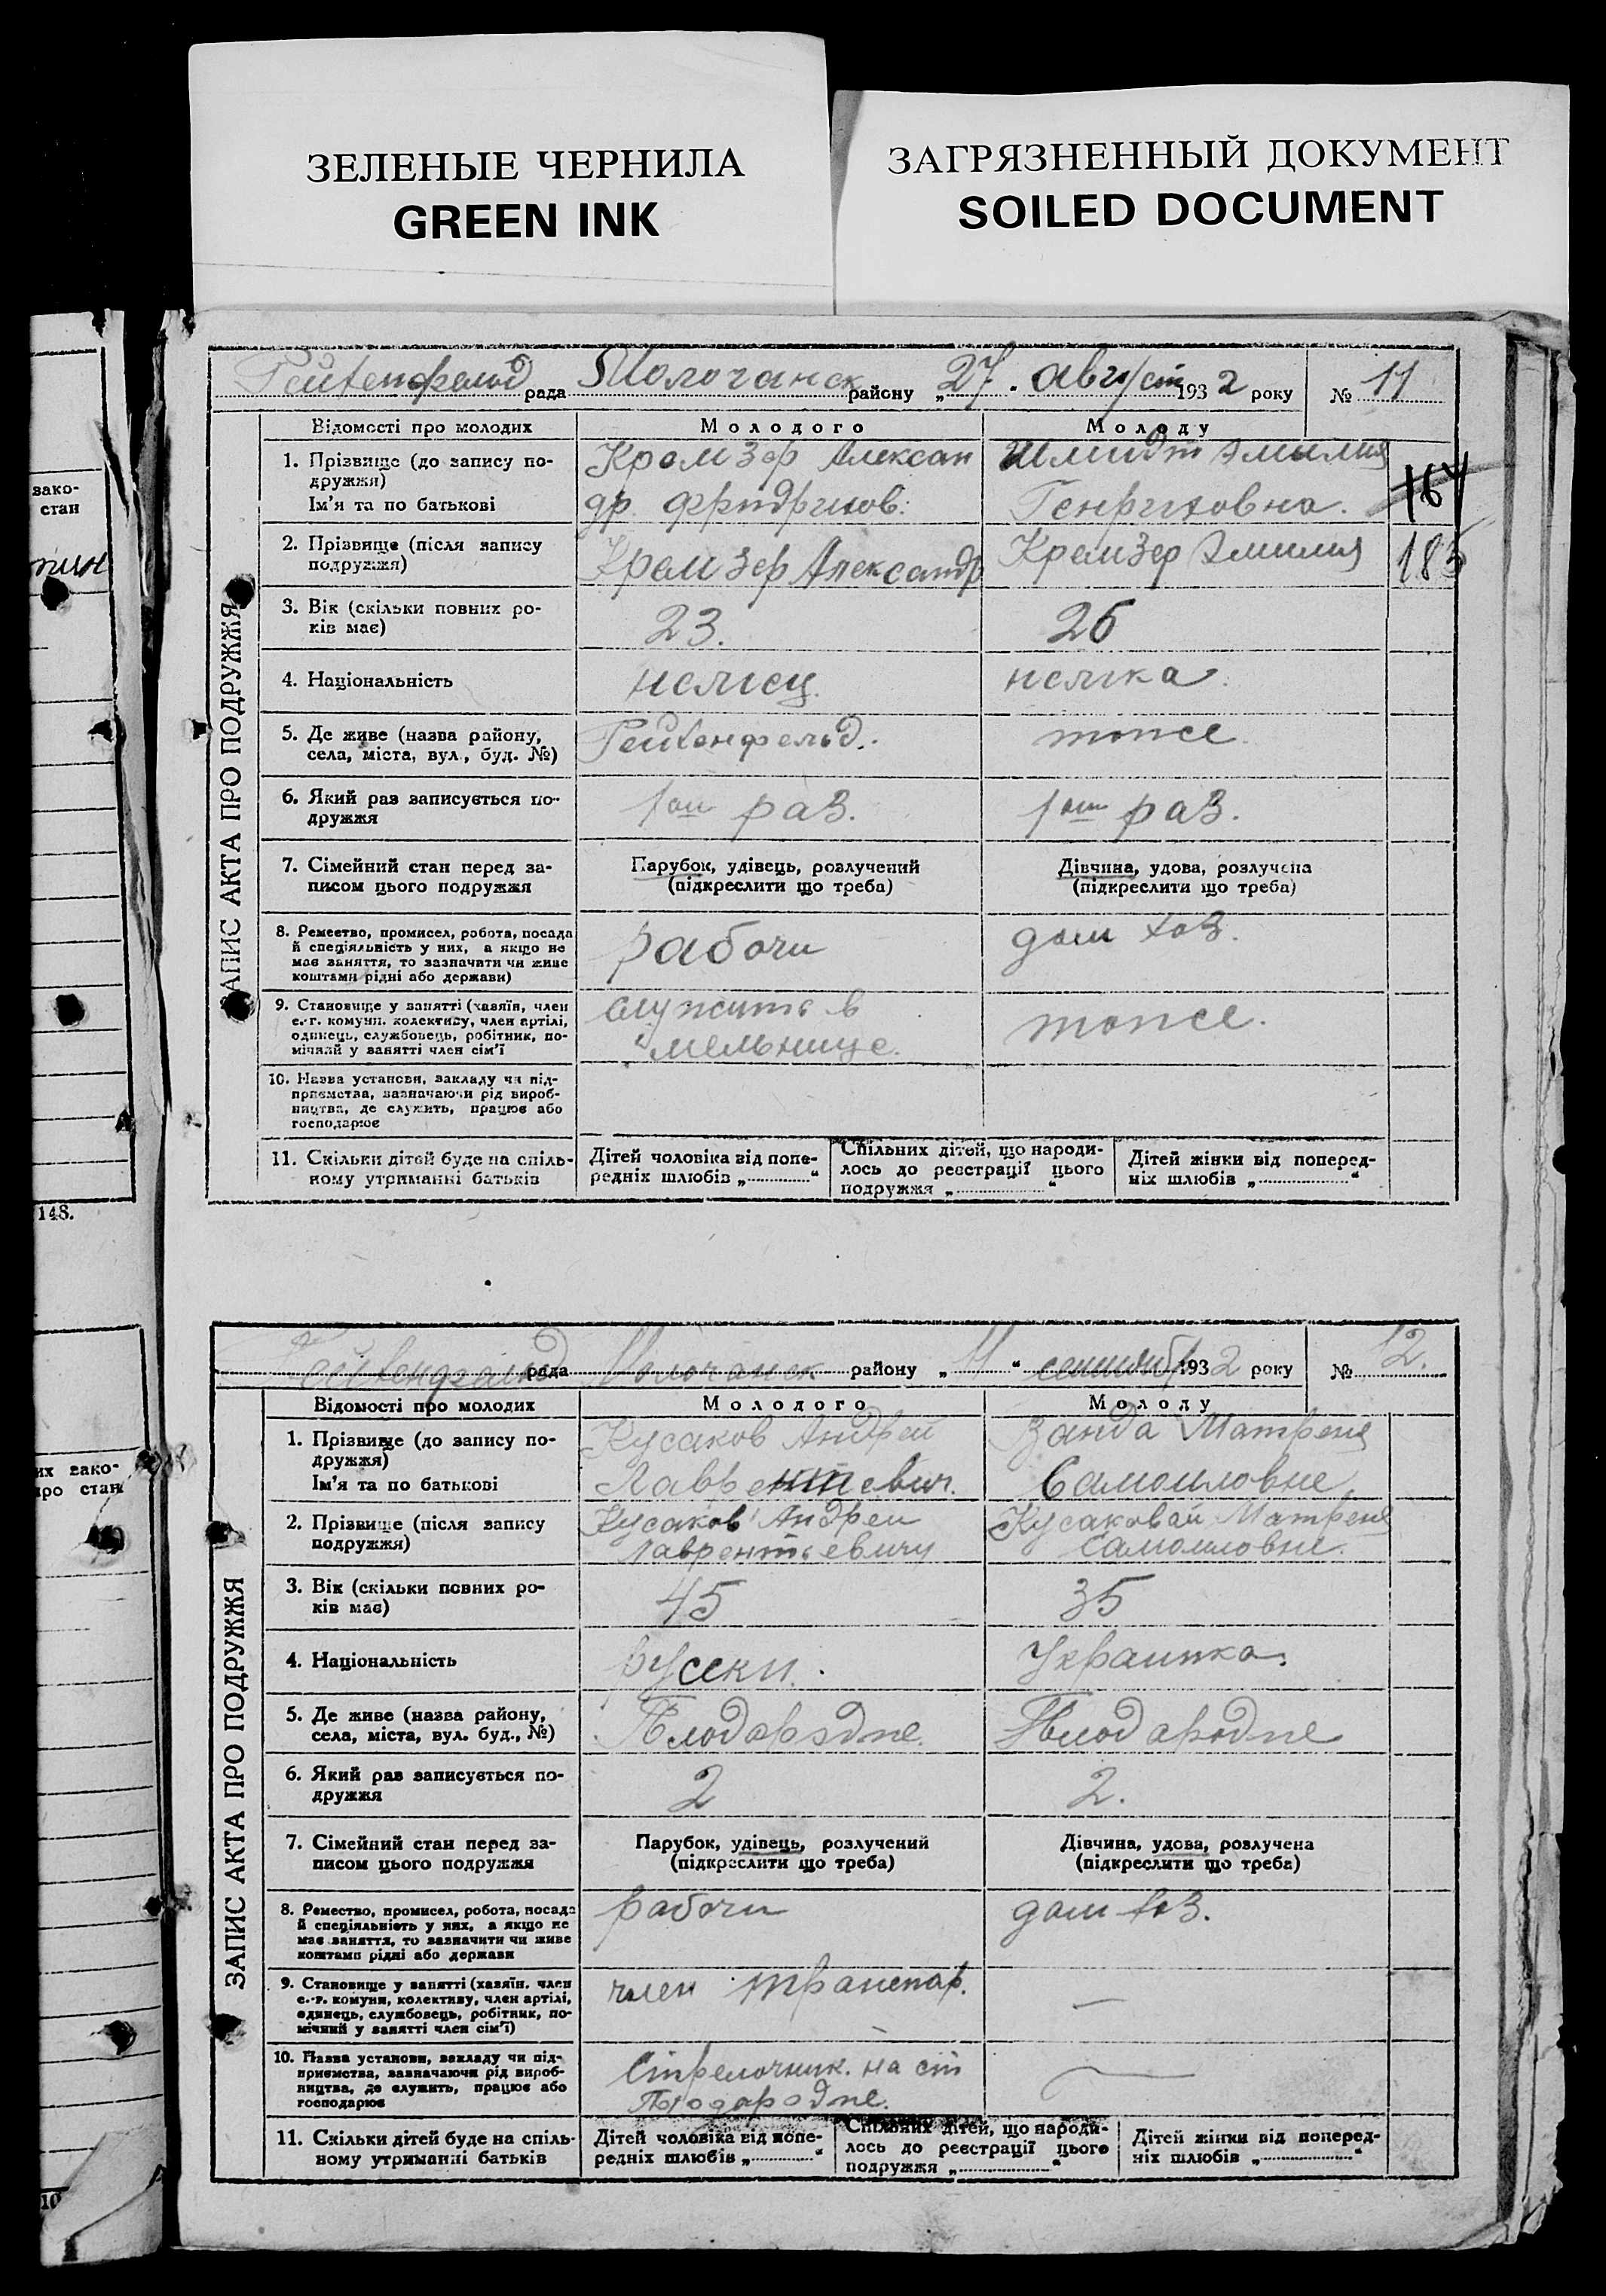 ЗЕЛЕНЫЕ ЧЕРНИЛА
GREEN INK
ЗАГРЯЗНЕННЫЙ ДОКУМЕНТ
SOILED DOCUMENT
зако-
стан
148.
их зако-
про стан
Рейхенфельд рада Молочанск району „27. август 1932 року № 11
ЗАПИС АКТА ПРО ПОДРУЖЖЯ
Відомості про молодих Молодого Молоду
1. Прізвище (до запису по-
дружжя)
Ім'я та по батькові
Кремзер Алексан
др Фридрихов.
Шмидт Эмилия
Генриховна.
164
185
2. Прізвище (після запису
подружжя)
Кремзер Александр
Кремзер Эмилия
3. Вік (скільки повних ро-
ків має)
23.
26
4. Національність
немец.
немка.
5. Де живе (назва району,
села, міста, вул., буд. №)
Рейхенфельд.
тоже
6. Який раз записується по-
дружжя
1ый раз.
1ый раз.
7. Сімейний стан перед за-
писом цього подружжя
Парубок, удівець, розлучений
(підкреслити що треба)
Дівчина, удова, розлучена
(підкреслити що треба)
8. Ремество, промисел, робота, посада
й спеціяльність у них, а якщо не
має заняття, то зазначити чи живе
коштами рідні або держави)
рабочи
дом хоз.
9. Становище у занятті (хазяїн, член
с.-г. комуни, колективу, член артілі,
одинець, службовець, робітник, по-
мічний у занятті член сім'ї
служить в
мельнице.
тоже.
10. Назва установи, закладу чи під-
приємства, зазначаючи рід вироб-
ництва, де служить, працює або
господарює
11. Скільки дітей буде на спіль-
ному утриманні батьків
Дітей чоловіка від попе-
редніх шлюбів „..............“
Спільних дітей, що народи-
лось до реєстрації цього
подружжя „..............“
Дітей жінки від поперед-
ніх шлюбів „..............“
Рейхенфельд рада Молочанск району „11“ сентябр 1932 року № 12.
ЗАПИС АКТА ПРО ПОДРУЖЖЯ
Відомості про молодих Молодого Молоду
1. Прізвище (до запису по-
дружжя)
Ім'я та по батькові
Кусаков Андрей
Лаврентевич.
Занда Матрена
Самоиловне
2. Прізвище (після запису
подружжя)
Кусаков Андреи
Лаврентьевичу
Кусаковай Матрене
Самоиловне.
3. Вік (скільки повних ро-
ків має)
45
35
4. Національність
русски.
Украинка.
5. Де живе (назва району,
села, міста, вул. буд., №)
Плодородне.
Плодародне
6. Який раз записується по-
дружжя
2
2.
7. Сімейний стан перед за-
писом цього подружжя
Парубок, удівець, розлучений
(підкреслити що треба)
Дівчина, удова, розлучена
(підкреслити що треба)
8. Ремество, промисел, робота, посада
й спеціяльність у них, а якщо не
має заняття, то зазначити чи живе
коштами рідні або держави
рабочи
дом хоз.
9. Становище у занятті (хазяїн, член
с.-г. комуни, колективу, член артілі,
одинець, службовець, робітник, по-
мічний у занятті член сім'ї)
член
—
10. Назва установи, закладу чи під-
приємства, зазначаючи рід вироб-
ництва, де служить, працює або
господарює
Стрелочник. на ст
Плодородне.
—
11. Скільки дітей буде на спіль-
ному утриманні батьків
Дітей чоловіка від попе-
редніх шлюбів „..............“
Спільних дітей, що народи-
лось до реєстрації цього
подружжя „..............“
Дітей жінки від поперед-
ніх шлюбів „..............“